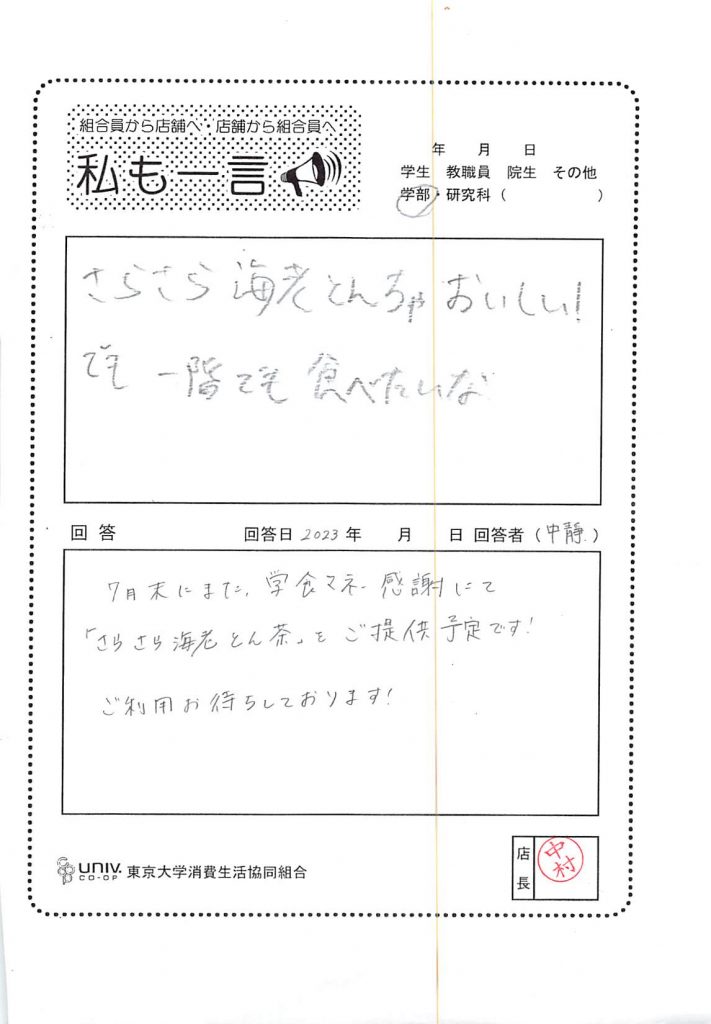 組合員から店舗へ・店舗から組合員へ
私も一言
年 月 日
学生 教職員 院生 その他
学部・研究科( )
さらさら海老とんちゃおいしい!
でも 一階でも 食べたいな
回答 回答日 2023年 月 日 回答者(中靜)
7月末にまた、学食マネー感謝にて
「さらさら海老とん茶」をご提供予定です!
ご利用お待ちしております!
UNIV. CO-OP 東京大学消費生活協同組合
店長 中村